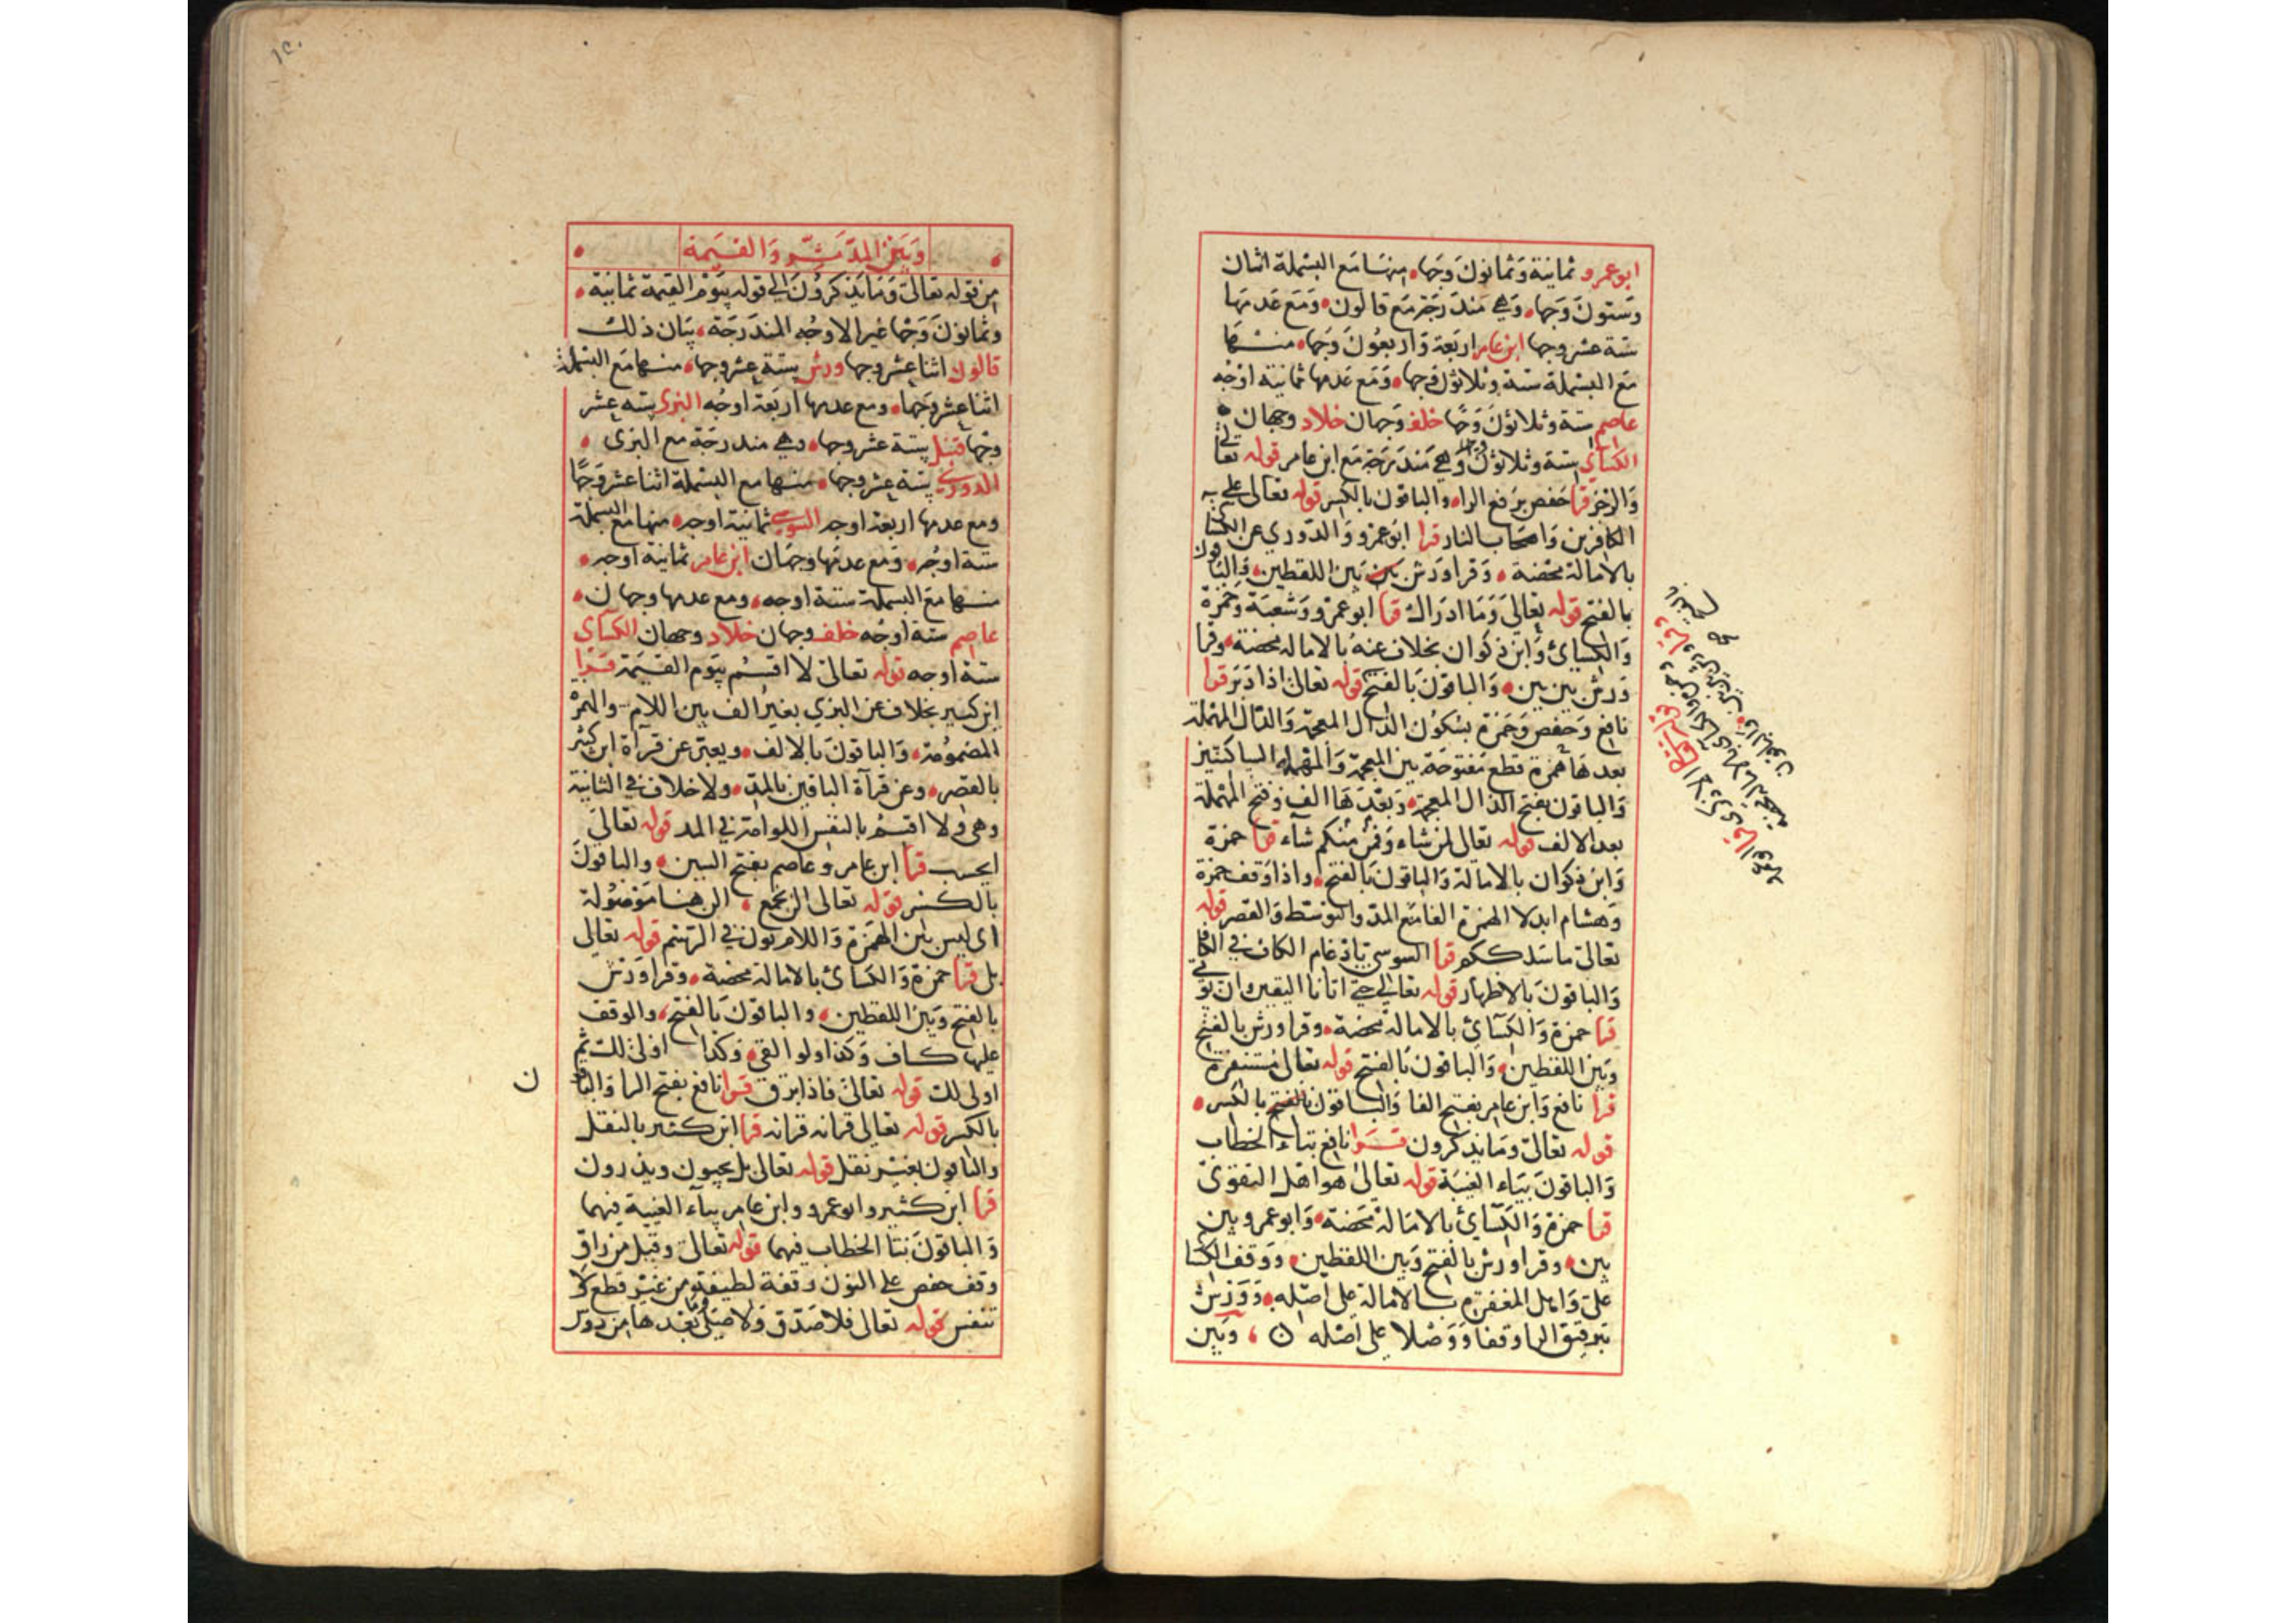 ابو عمرو ثمانية وثمانون وجها، منها مع البسملة اثنان
وستون وجها، وهي مندرجة مع قالون، ومع عدمها
ستة عشر وجها ابن عامر اربعة واربعون وجها، منها
مع البسملة ستة وثلاثون وجها، ومع عدمها ثمانية اوجه
عاصم ستة وثلاثون وجًا خلف وجهان خلاد وجهان
الكسائي ستة وثلاثون وجها وهي مندرجة مع ابن عامر قوله تعالى
والرجز قرا حفص برفع الراء والباقون بالكسر قوله تعالى على
الكافرين واصحاب النار قرا ابو عمرو والدوري عن الكسائي
بالامالة محضة، وقرا ورش بين بين اللفظين، والباقون
بالفتح قوله تعالى وما ادراك قرا ابو عمرو وشعبة وحمزة
والكسائي وابن ذكوان بخلاف عنه بالامالة محضة، وقرا
ورش بين بين، والباقون بالفتح قوله تعالى اذا دبر قرا
نافع وحفص وحمزة بسكون الذال المعجمة والدال المهملة
بعدها همزة قطع مفتوحة بين المعجمة والمهملة الساكنتين
والباقون بفتح الذال المعجمة، وبعدها الف وفتح المهملة
بعد الالف قوله تعالى لمن شاء وفمن منكم شاء قرا حمزة
وابن ذكوان بالامالة والباقون بالفتح، واذا وقف حمزة
وهشام ابدلا الهمزة الفا مع المد والتوسط والقصر قوله
تعالى ما سلككم قرا السوسي بادغام الكاف في الكاف
والباقون بالاظهار قوله تعالى حتى اتانا اليقين ان يؤتى
قرا حمزة والكسائي بالامالة محضة، وقرا ورش بالفتح
وبين اللفظين، والباقون بالفتح قوله تعالى مستنفرة
قرا نافع وابن عامر بفتح الفا والباقون بالفتح بالكسر،
قوله تعالى وما يذكرون قرا نافع بتاء الخطاب
والباقون بياء الغيبة قوله تعالى هو اهل التقوى
قرا حمزة والكسائي بالامالة محضة، وابو عمرو بين
بين، وقرا ورش بالفتح وبين اللفظين، ووقف الكسائي
على واهل المغفرة بالامالة على اصله، وورش
بترقيق الرا وقفا ووصلا على اصله ن ، وبين
١٥٠
وبين المدثر والقيمة
من قوله تعالى وما يذكرون الى قوله بيوم القيمة ثمانية،
وثمانون وجها غير الاوجه المندرجة، بيان ذلك
قالون اثنا عشر وجها ورش ستة عشر وجها، منها مع البسملة
اثنا عشر وجها، ومع عدمها اربعة اوجه البزي ستة عشر
وجها قنبل ستة عشر وجها، وهي مندرجة مع البزي،
الدوري ستة عشر وجها، منها مع البسملة اثنا عشر وجًا
ومع عدمها اربعة اوجه السوسي ثمانية اوجه، منها مع البسملة
ستة اوجه، ومع عدمها وجهان ابن عامر ثمانية اوجه،
منها مع البسملة ستة اوجه، ومع عدمها وجهان،
عاصم ستة اوجه خلف وجهان خلاد وجهان الكسائي
ستة اوجه قوله تعالى لا اقسم بيوم القيمة قرا
ابن كثير بخلاف عن البزي بغير الف بين اللام والهمزة
المضمومة، والباقون بالالف، ويعبر عن قرآة ابن كثير
بالقصر، وعن قرآة الباقين بالمد، ولا خلاف في الثانية
وهي ولا اقسم بالنفس اللوامة في المد قوله تعالى
ايحسب قرا ابن عامر وعاصم بفتح السين، والباقون
بالكسر قوله تعالى الن نجمع، الن هنا موصولة
اي ليس بين الهمزة واللام نون في الرسم قوله تعالى
بلى قرا حمزة والكسائي بالامالة محضة، وقرا ورش
بالفتح وبين اللفظين، والباقون بالفتح، والوقف
عليها كاف وكذا ولو القى، وكذا اولى لك ثم
اولى لك قوله تعالى فاذا برق قرا نافع بفتح الرا والباقون
بالكسر قوله تعالى قرانه قرانه قرا ابن كثير بالنقل
والباقون بغير نقل قوله تعالى بل يحبون ويذرون
قرا ابن كثير وابو عمرو وابن عامر بياء الغيبة فيهما
والباقون بتا الخطاب فيهما قوله تعالى وقيل من راق
وقف حفص على النون وقفة لطيفة من غير قطع لا
تنفس قوله تعالى فلا صدق ولا صلى وما بعدها من روس
ن